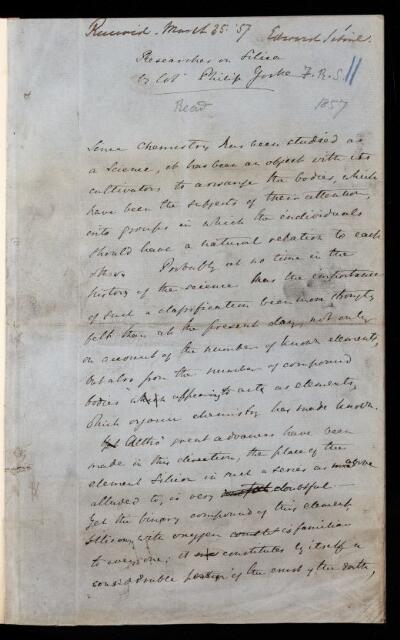 Received March 25 '57 Edward Sabine.
Researches on Silica
by Col. Philip Yorke F.R.S. 11
Read 1857
Since Chemistry has been studied as
a Science, it has been an object with its
cultivators to arrange the bodies, which
have been the subjects of their attention,
into groups in which the individuals
should have a natural relation to each
other. Probably at no time in the
history of the science has the importance
of such a classification been more strongly
felt than at the present day, not only
on account of the number of known elements,
but also from the number of compound
bodies appearing to act as elements,
which organic chemistry has made known.
Altho' great advances have been
made in this direction, the place of the
element Silicon in such a series as above
alluded to, is very doubtful
Yet the binary compound of this element
Silicon, with oxygen is familiar
to everyone; it constitutes by itself a
considerable portion of the crust of the earth,